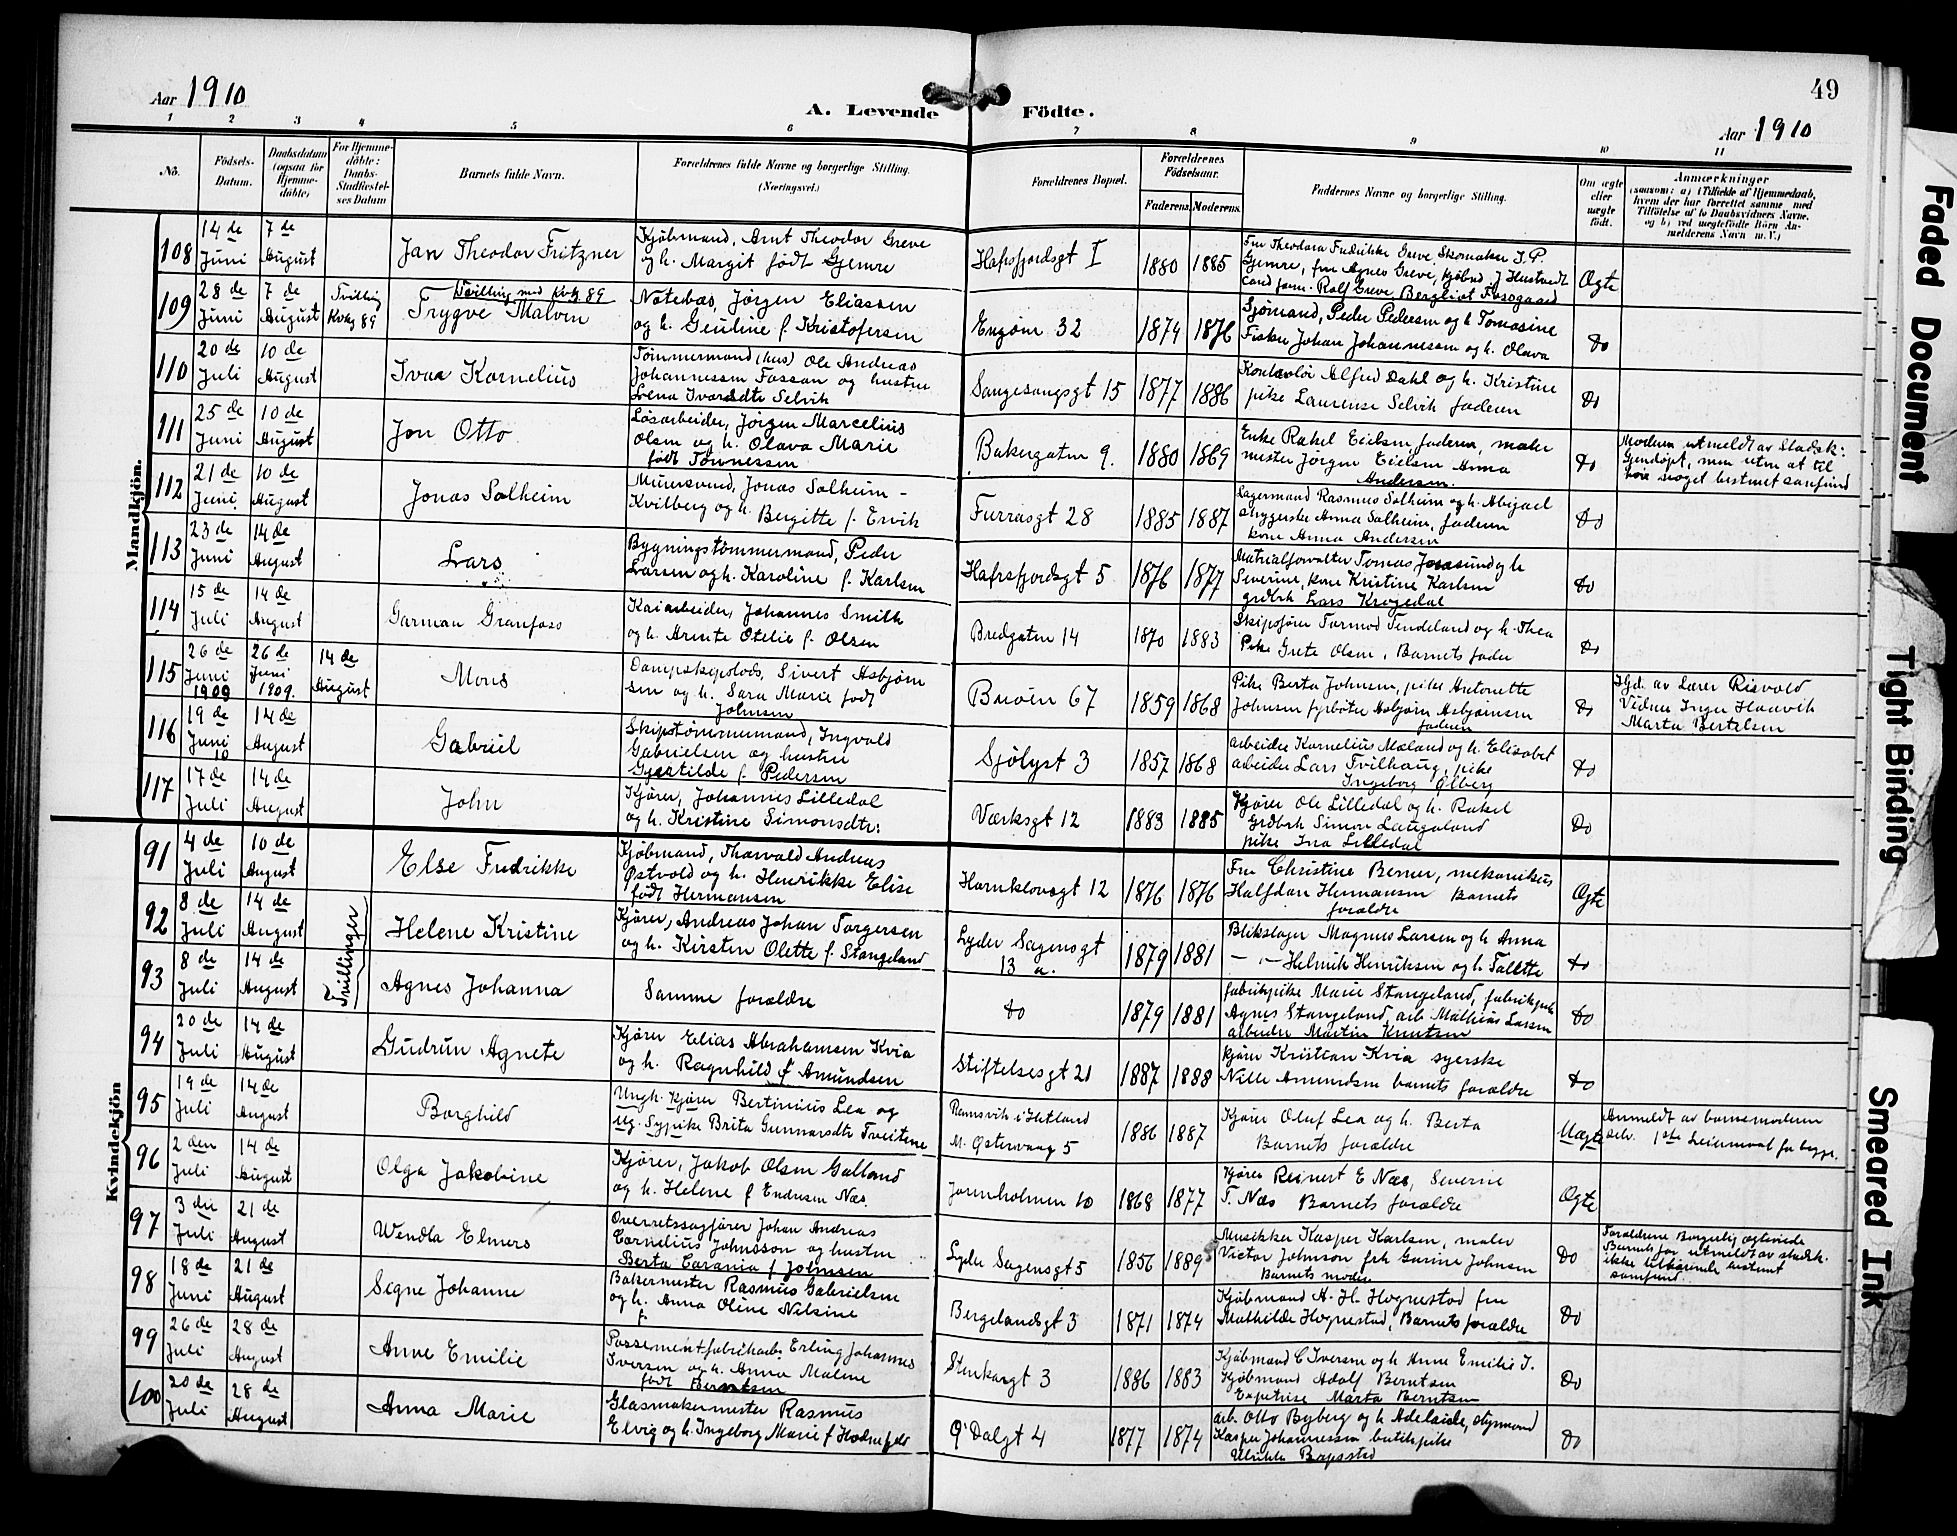 Aar 1910
A. Levende Födte.
49
Aar 1910
1 2 3 4 5 6 7 8 9 10 11
No.
Födsels-Datum.
Daabsdatum (ogsaa for Hjemmedöbte)
For Hjemmedöbte: Daabs-Stadfæstelses Datum
Barnets fulde Navn.
Forældrenes fulde Navne og borgerlige Stilling.
(Næringsvei.)
Forældrenes Bopæl.
Forældrenes Födselsaar.
Faderens. Moderens.
Faddernes Navne og borgerlige Stilling.
Om ægte eller uægte født.
Anmærkninger
(saasom: a) (Tilfælde af Hjemmedaab,
hvem der har forrettet samme med
Tilföielse af to Daabsvidners Navne.
og b) ved uægtefödte Börn An-
melderens Navn m. V.)
Mandkjön.
108 14de Juni 7de August Jan Theodor Fritzner
Kjøbmand, Arnt Theodor Greve
og h. Margit født Gjemre
Hafrsfjordsgt I 1880 1885
Fru Theodora Fredrikke Greve Skomaker I. P.
Gjemre, fru Agnes Greve, kjøbmd J Hustvedt
Cand farm. Rolf Greve Bergliot
Ægte
109 28de Juni 7de August Tvilling Kvkj 89
Tvilling med kvkj. 89
Trygve Malvin
Notebas, Jørgen Eliassen
og h. Geuline f Kristofersen
Engøen 32 1874 1876
Sjømand, Peder Pedersen og h Tomasine
Fisker Johan Johannessen og h. Olava
Do
110 20de Juli 10de August Ivar Kornelius
Tømmermand (hus) Ole Andreas
Johannessen Fossan og hustru
Lena Ivarsdtr Selvik
Sangesangsgt 15 1877 1886
Kontorlør Alfred Dahl og h. Kristine
pike Laurense Selvik faderen
Do
111 25de Juni 10de August Jon Otto
Løsarbeider, Jørgen Marcelius
Olsen og h. Olava Marie
født Tønnessen
Bakergaten 9. 1880 1869
Enke Rakel Eielsen faderen, maler
mester Jørgen Eielsen Anna
Andersen.
Do
Moderen utmeldt av Statsk:
Gjendøpt, men uten at til
høre noget bestemt samfund
112 21de Juni 10de August Jonas Solheim
Murersvend, Jonas Solheim -
Kvilberg og h. Bergitte f. Ervik
Furrasgt 28 1885 1887
Lagermand Rasmus Solheim og h. Abigael
Anna Solheim, faderen
kone Anna Andersen
Do
113 23de Juni 14de August Lars
Bygningstømmermand, Peder
Larsen og h. Karoline f. Karlsen
Hafrsfjordsgt 5 1876 1877
Matrialforvalter Tomas Jøssund og h
Severine, kone Kristine Karlsen
grdbrk Lars Krogedal
Do
114 15de Juli 14de August Garman Granfoss
Kaiarbeider, Johannes Smith
og h. Arnte Otelie f. Olsen
Bredgaten 14 1870 1883
Skipsfører Tormod Tendeland og h. Thea
Pike Grete Olsen, Barnets fader
Do
115 26de Juni 1909 26de Juni 1909. 14de August Mons
Dampskipslods, Sivert Asbjørn
sen og h. Sara Marie født
Johnsen
Buøen 67 1859 1868
Pike Berta Johnsen, pike Antonette
Johnsen fyrbøter Asbjørn Asbjørnsen
faderen
Do
Hjd. av Lærer Risvold
Vidner Inger Haavik
Marta Bertelsen
116 19de Juni 10 14de August Gabriel
Skipstømmermand, Ingvald
Gabrielsen og hustru
Gjertilde f. Pedersen
Sjølyst 3 1857 1868
Arbeider Kornelius Mæland og h. Elisabet
arbeider Lars Tvilhaug, pike
Ingeborg Ølberg
Do
117 17de Juli 14de August John
Kjører, Johannes Lilledal
og h. Kristine Simonsdtr:
Værksgt 12 1883 1885
Kjører Ole Lilledal og h. Rakel
Grdbrk Simon Laugaland
pike Ina Lilledal
Do
Kvindekjön
91 4de Juli 10de August Else Fredrikke
Kjøbmand, Thorvald Andreas
Østvold og h. Henrikke Elise
født Hermansen
Harnklovsgt 12 1876 1876
Fru Christine Berner, mekanikus
Halfdan Hermansen Barnets
forældre
Ægte
92 8de Juli 14de August Helene Kristine
Tvillinger
Kjører, Andreas Johan Torgersen
og h. Kirsten Olette f. Stangeland
Lyder Sagensgt
13 a. 1879 1881
Blikslager Magnus Larsen og h Anna
— „— Helmik Henriksen og h. Talette
Do
93 8de Juli 14de August Agnes Johanna
Samme forældre
do 1879 1881
fabrikpike Marie Stangeland, fabrikpike
Agnes Stangeland, arb Mathias Larsen
arbeider Martin Knutsen
Do
94 20de Juli 14de August Gudrun Agnete
Kjører Elias Abrahamsen Kvia
og h. Ragnhild f Amundsen
Stiftelsesgt 21 1887 1888
Kjører Kristian Kvia syerske
Nille Amundsen barnets forældre
Do
95 19de Juli 14de August Borghild
Ungk. Kjører Bertinius Lea og
ug. Sypike Brita Gunnarsdtr Tveitene
Ramsvik i Hetland
M. Østervaag 5 1886 1887
Kjører Oluf Lea og h. Berta
Barnets forældre
Uægte
Anmeldt av barnemoderen
selv. 1ste Leiermaal for begge.
96 2den Juli 14de August Olga Jakobine
Kjører, Jakob Olsen Galland
og h. Helene f Endresen Næs
Jorenholmen 10 1868 1877
Kjører Reinert E Næs, Severine
T. Næs Barnets forældre
Ægte
97 3die Juli 21de August Wendla Elmers
Overretssagfører Johan Andreas
Cornelius Johnsson og hustru
Berta Carania f Johnsen
Lyder Sagensgt 5 1856 1889
Musikker Kasper Karlsen, maler
Victor Johnson frk Gurine Johnsen
Barnets moder
Do
Forældrene Borgerlig egteviede
Barnets far utmeldt av statsk.
ikke tilhørende bestemt
samfund.
98 18de Juni 21de August Segne Johanne
Bakermester Rasmus Gabrielsen
og h. Anna Oline Nilsine
f.
Bergelandsgt 3 1871 1874
Kjøbmand A. H. Hognestad fru
Mathilde Hognestad, Barnets forældre
Do
99 26de Juli 28de August Anne Emilie
Possementfabrikarb. Erling Johannes
Iversen og h. Anna Malene
født Berntsen
Stenkargt 3 1886 1883
Kjøbmand C Iversen og h Anne Emilie I.
Kjøbmand Adolf Berntsen
Expetrise Marta Berntsen
Do
100 20de Juli 28de August Anna Marie
Glasmakermester Rasmus
Elvig og h. Ingeborg Marie f Hodnefjeld
Ø Dalgt 4 1877 1874
arb. Otto Byberg og h Adelaide, styrmand
Kasper Johannessen butikpike
Ulrikke
Do
Faded Document
Tight Binding
Smeared Ink